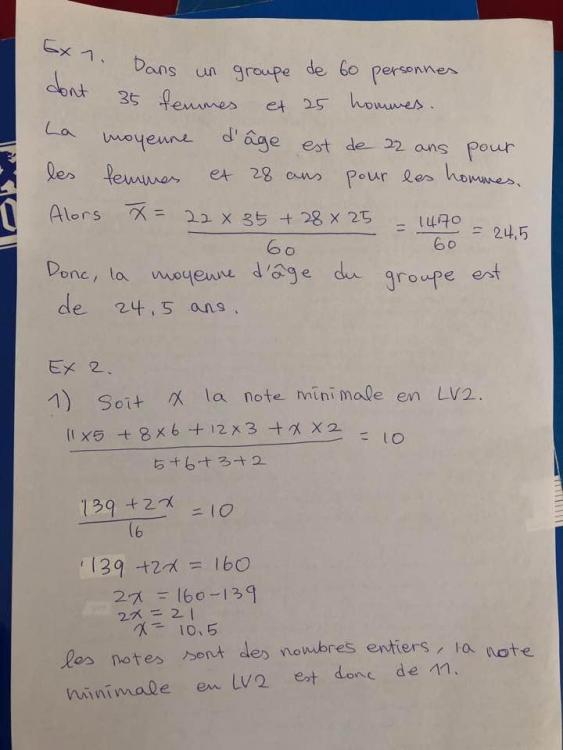 Ex 1. Dans un groupe de 60 personnes
dont 35 femmes et 25 hommes.
La moyenne d'âge est de 22 ans pour
les femmes et 28 ans pour les hommes.
Alors x̄ = (22 × 35 + 28 × 25)/60 = 1470/60 = 24,5
Donc, la moyenne d'âge du groupe est
de 24,5 ans.
Ex 2.
1) Soit x la note minimale en LV2.
(11×5 + 8×6 + 12×3 + x × 2)/(5+6+3+2) = 10
(139 + 2x)/16 = 10
139 + 2x = 160
2x = 160-139
2x = 21
x = 10.5
les notes sont des nombres entiers, la note
minimale en LV2 est donc de 11.